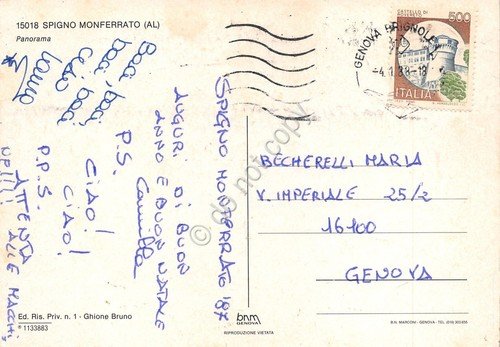 15018 SPIGNO MONFERRATO (AL)
Panorama
SPIGNO MONFERRATO '87
AUGURI DI BUON
ANNO E BUON NATALE
Camilla
P.S.
CIAO!
CIAO!
P.P.S.
ATTENTA
ALLE MACCHI
Baci, baci,
baci, baci
GENOVA BRIGNOLE
-4.1.88-18
CASTELLO DI
500
ITALIA
BECHERELLI MARIA
V. IMPERIALE 25/2
16100
GENOVA
do not copy
Ed. Ris. Priv. n. 1 - Ghione Bruno
* 1133883
bnm
GENOVA
RIPRODUZIONE VIETATA
B.N. MARCONI - GENOVA - TEL.